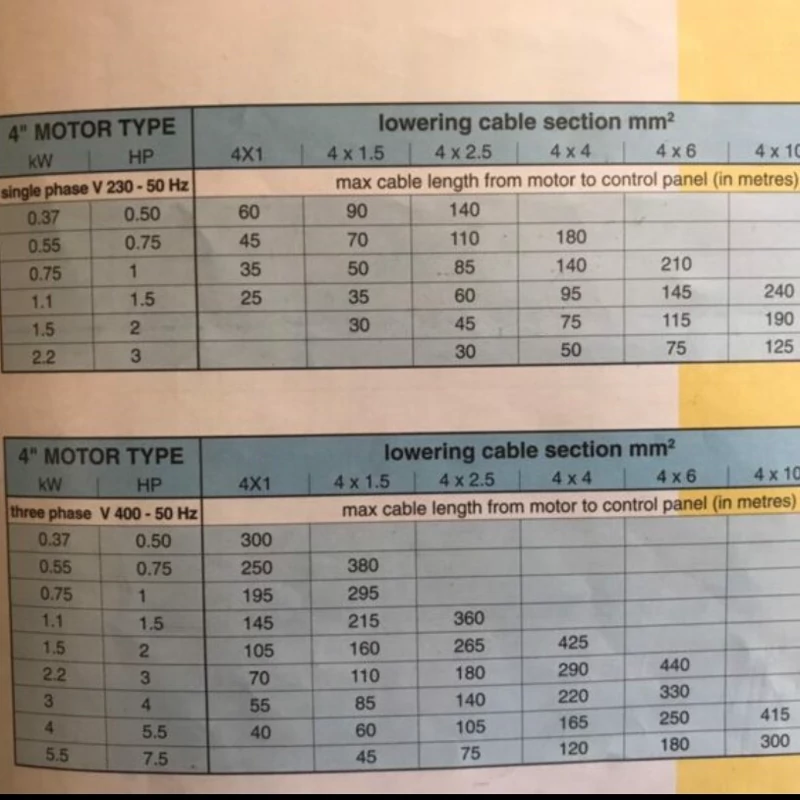 4" MOTOR TYPE lowering cable section mm²
kW HP 4X1 4 x 1.5 4 x 2.5 4 x 4 4 x 6 4 x 10
single phase V 230 - 50 Hz max cable length from motor to control panel (in metres)
0.37 0.50 60 90 140
0.55 0.75 45 70 110 180
0.75 1 35 50 85 140 210
1.1 1.5 25 35 60 95 145 240
1.5 2 30 45 75 115 190
2.2 3 30 50 75 125
4" MOTOR TYPE lowering cable section mm²
kW HP 4X1 4 x 1.5 4 x 2.5 4 x 4 4 x 6 4 x 10
three phase V 400 - 50 Hz max cable length from motor to control panel (in metres)
0.37 0.50 300
0.55 0.75 250 380
0.75 1 195 295
1.1 1.5 145 215 360
1.5 2 105 160 265 425
2.2 3 70 110 180 290 440
3 4 55 85 140 220 330
4 5.5 40 60 105 165 250 415
5.5 7.5 45 75 120 180 300